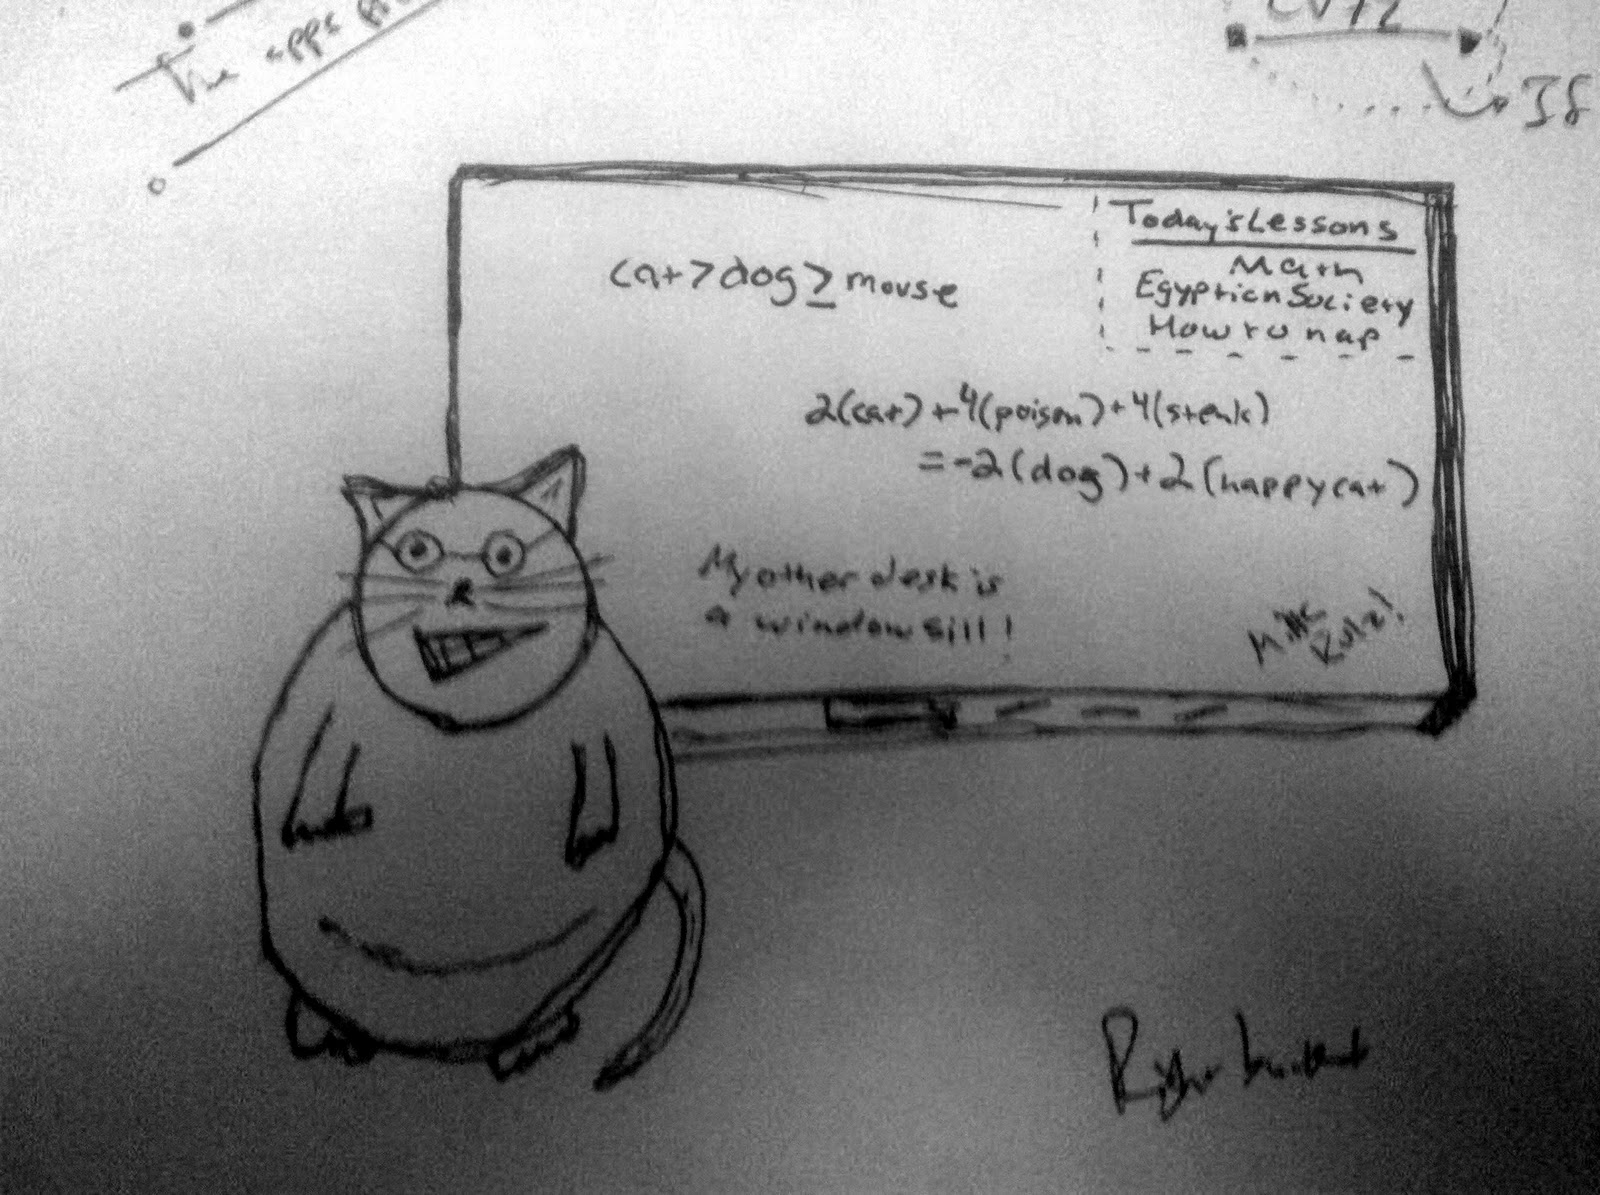 The apps
Today's Lessons
Math
Egyptian Society
How to nap
cat > dog ≥ mouse
2(cat) + 4(poison) + 4(steak)
= -2(dog) + 2(happy cat)
My other desk is
a window sill!
Milk
Rulz!